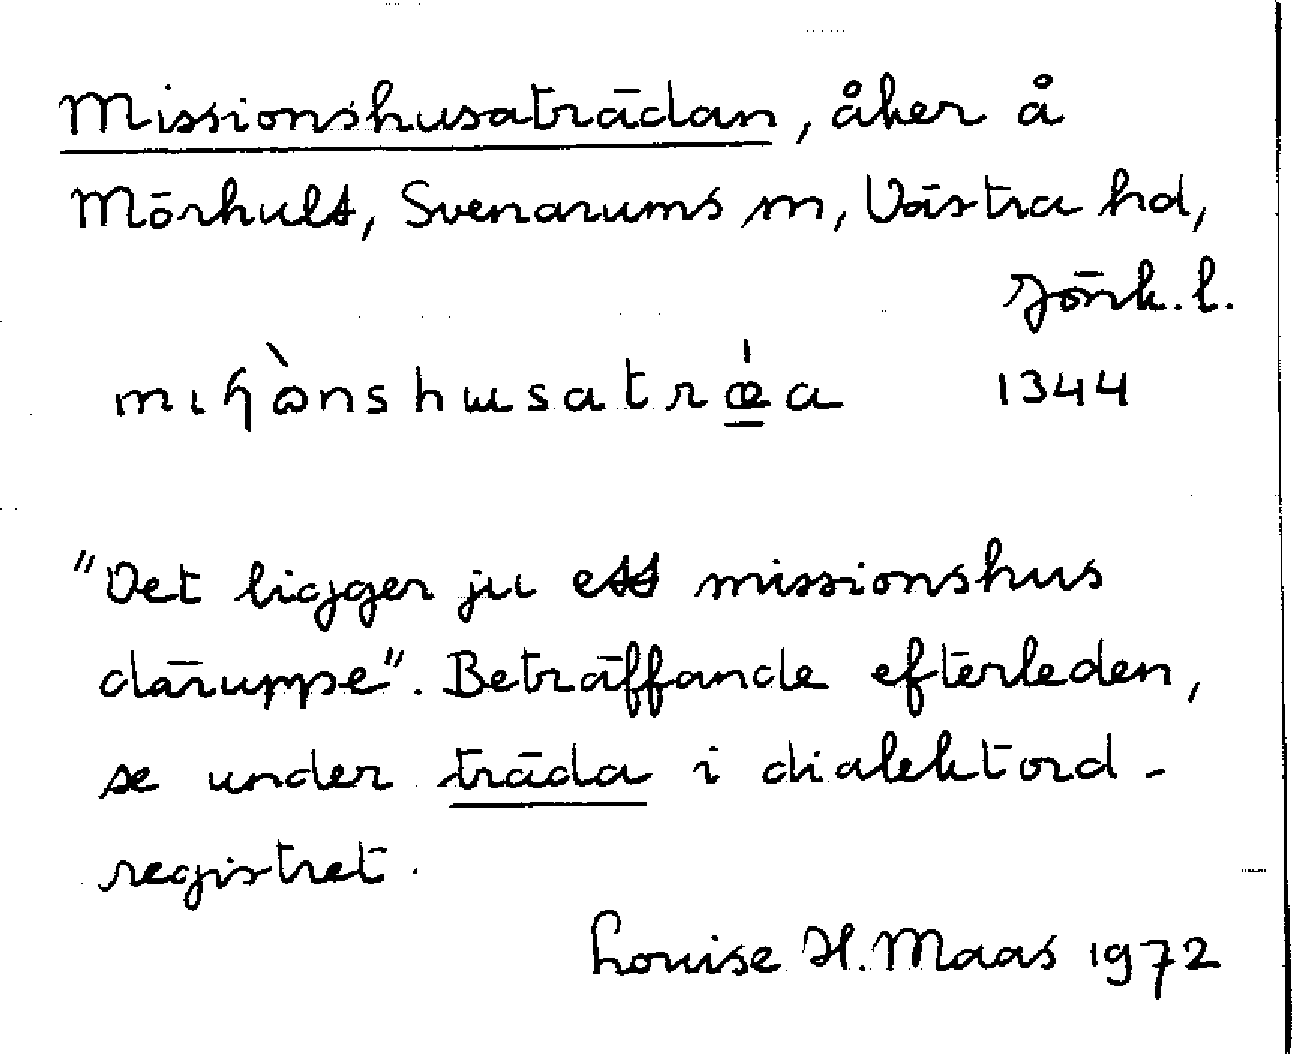 Missionshusaträdan, åker å
Mörhult, Svenarums sn, Västra hd,
Jönk. l.
1344
"Det ligger ju ett missionshus
däruppe". Beträffande efterleden,
se under träda i dialektord-
registret.
Louise H. Maas 1972